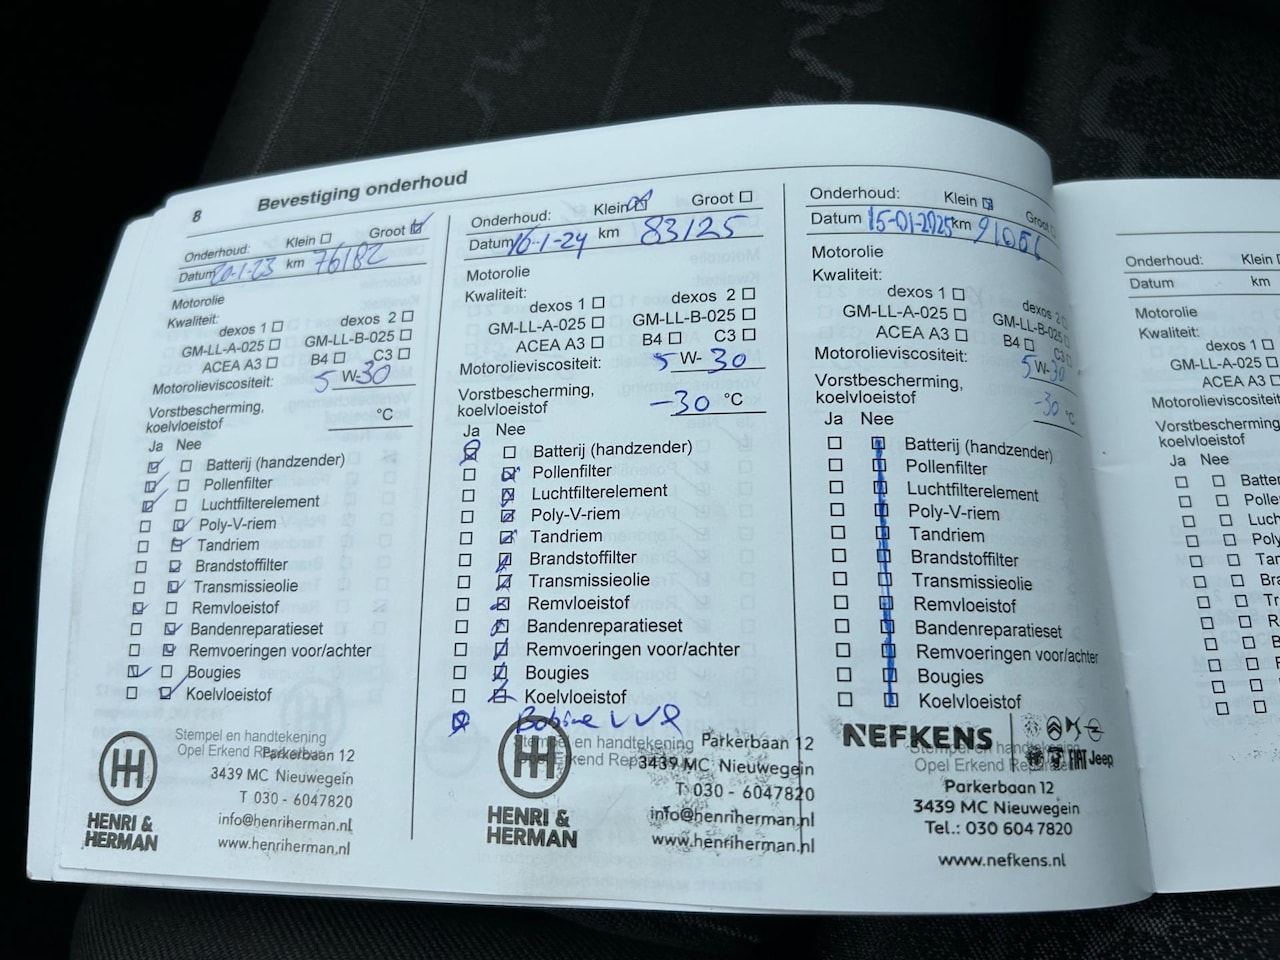 8 Bevestiging onderhoud
Onderhoud: Klein Groot
Datum 20-1-23 km 76182
Motorolie
Kwaliteit:
dexos 1 dexos 2
GM-LL-A-025 GM-LL-B-025
ACEA A3 B4 C3
Motorolieviscositeit: 5 W-30
Vorstbescherming,
koelvloeistof °C
Ja Nee
Batterij (handzender)
Pollenfilter
Luchtfilterelement
Poly-V-riem
Tandriem
Brandstoffilter
Transmissieolie
Remvloeistof
Bandenreparatieset
Remvoeringen voor/achter
Bougies
Koelvloeistof
Stempel en handtekening
Opel Erkend
Parkerbaan 12
3439 MC Nieuwegein
T 030 - 6047820
info@henriherman.nl
www.henriherman.nl
HENRI &
HERMAN
Onderhoud: Klein Groot
Datum 16-1-24 km 83125
Motorolie
Kwaliteit:
dexos 1 dexos 2
GM-LL-A-025 GM-LL-B-025
ACEA A3 B4 C3
Motorolieviscositeit: 5 W-30
Vorstbescherming,
koelvloeistof -30 °C
Ja Nee
Batterij (handzender)
Pollenfilter
Luchtfilterelement
Poly-V-riem
Tandriem
Brandstoffilter
Transmissieolie
Remvloeistof
Bandenreparatieset
Remvoeringen voor/achter
Bougies
Koelvloeistof
Stempel en handtekening
Opel Erkend
Parkerbaan 12
3439 MC Nieuwegein
T 030 - 6047820
info@henriherman.nl
www.henriherman.nl
HENRI &
HERMAN
Onderhoud: Klein Groot
Datum 15-01-2025 km
Motorolie
Kwaliteit:
dexos 1 dexos 2
GM-LL-A-025 GM-LL-B-025
ACEA A3 B4 C3
Motorolieviscositeit: 5 W-30
Vorstbescherming,
koelvloeistof -30 °C
Ja Nee
Batterij (handzender)
Pollenfilter
Luchtfilterelement
Poly-V-riem
Tandriem
Brandstoffilter
Transmissieolie
Remvloeistof
Bandenreparatieset
Remvoeringen voor/achter
Bougies
Koelvloeistof
NEFKENS
FIAT Jeep
Stempel en
Opel Erkend
Parkerbaan 12
3439 MC Nieuwegein
Tel.: 030 604 7820
www.nefkens.nl
Onderhoud: Klein
Datum km
Motorolie
Kwaliteit:
dexos 1
GM-LL-A-025
ACEA A3
Motorolieviscositeit
Vorstbescherming,
koelvloeistof
Ja Nee
Batte
Polle
Luch
Poly
Tan
Bra
Tr
R
B